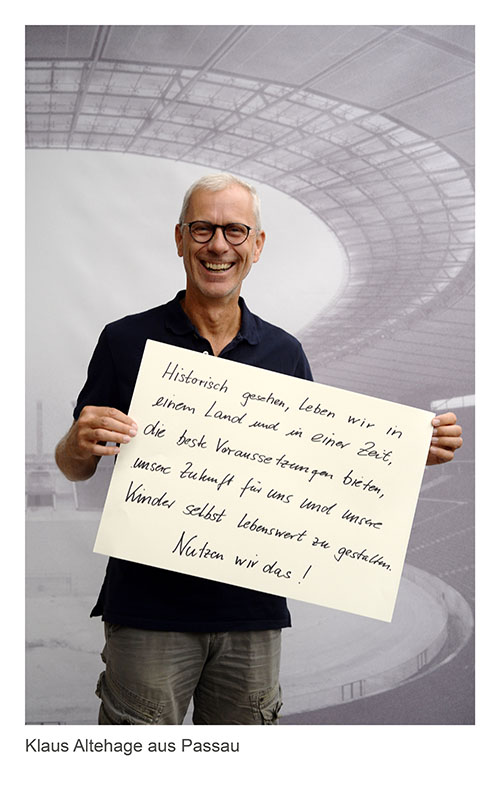 Historisch gesehen, leben wir in
einem Land und in einer Zeit,
die beste Voraussetzungen bieten,
unsere Zukunft für uns und unsere
Kinder selbst lebenswert zu gestalten.
Nutzen wir das!
Klaus Altehage aus Passau